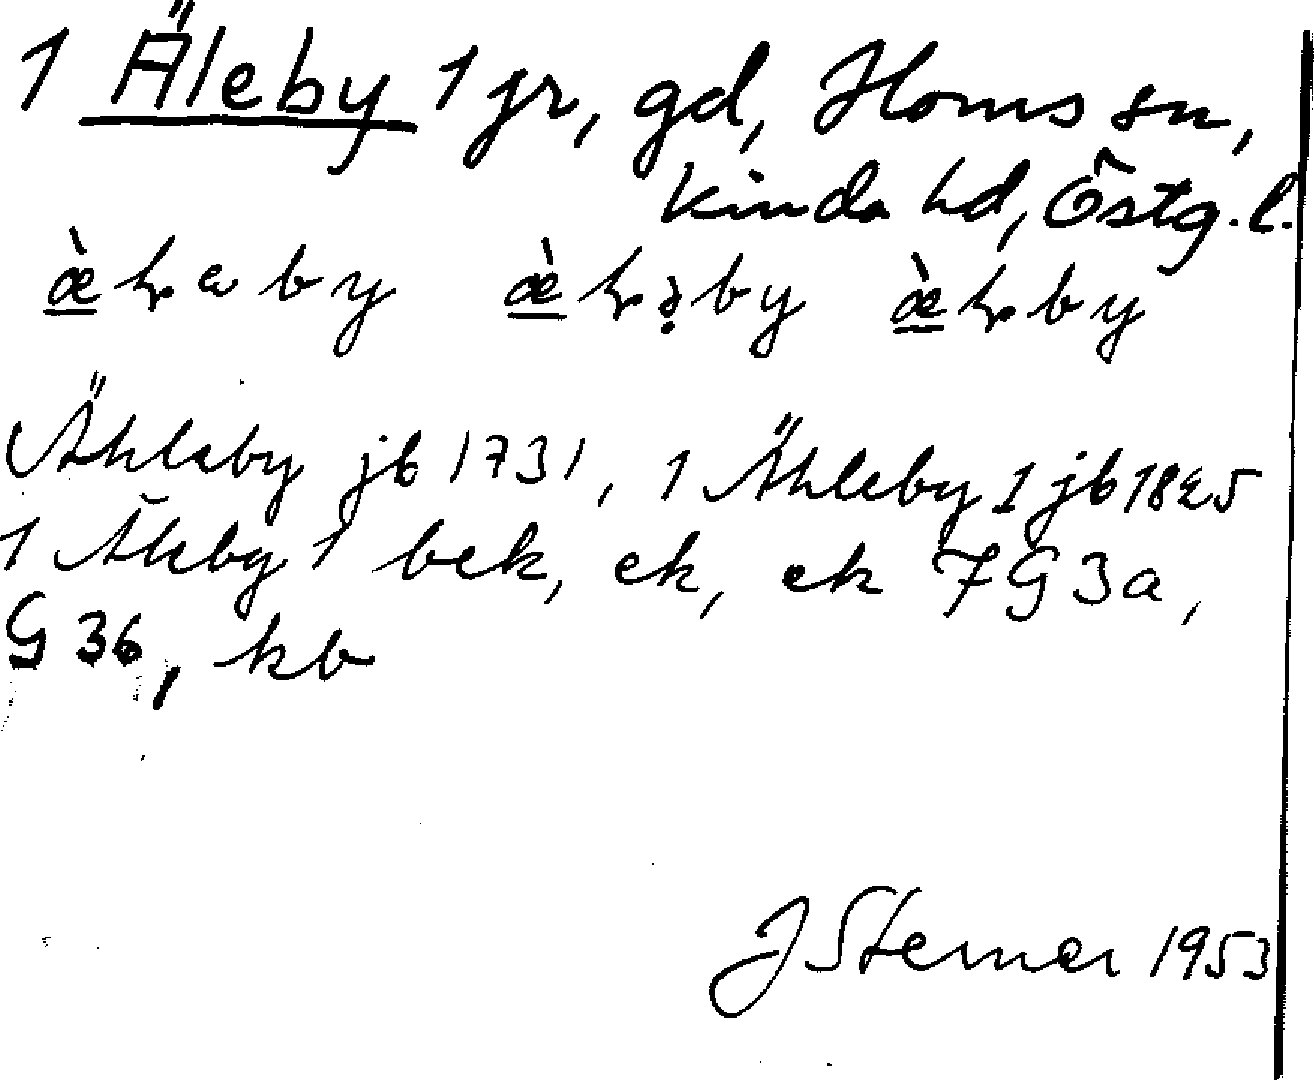 1 Äleby 1 jr, gd, Horns sn,
Kinda hd, Östg.l.
Ähleby jb 1731, 1 Ähleby 1 jb 1825
1 Äleby 1 bek, ek, ek 7G3a,
G 36, kb
J Sterner 1953